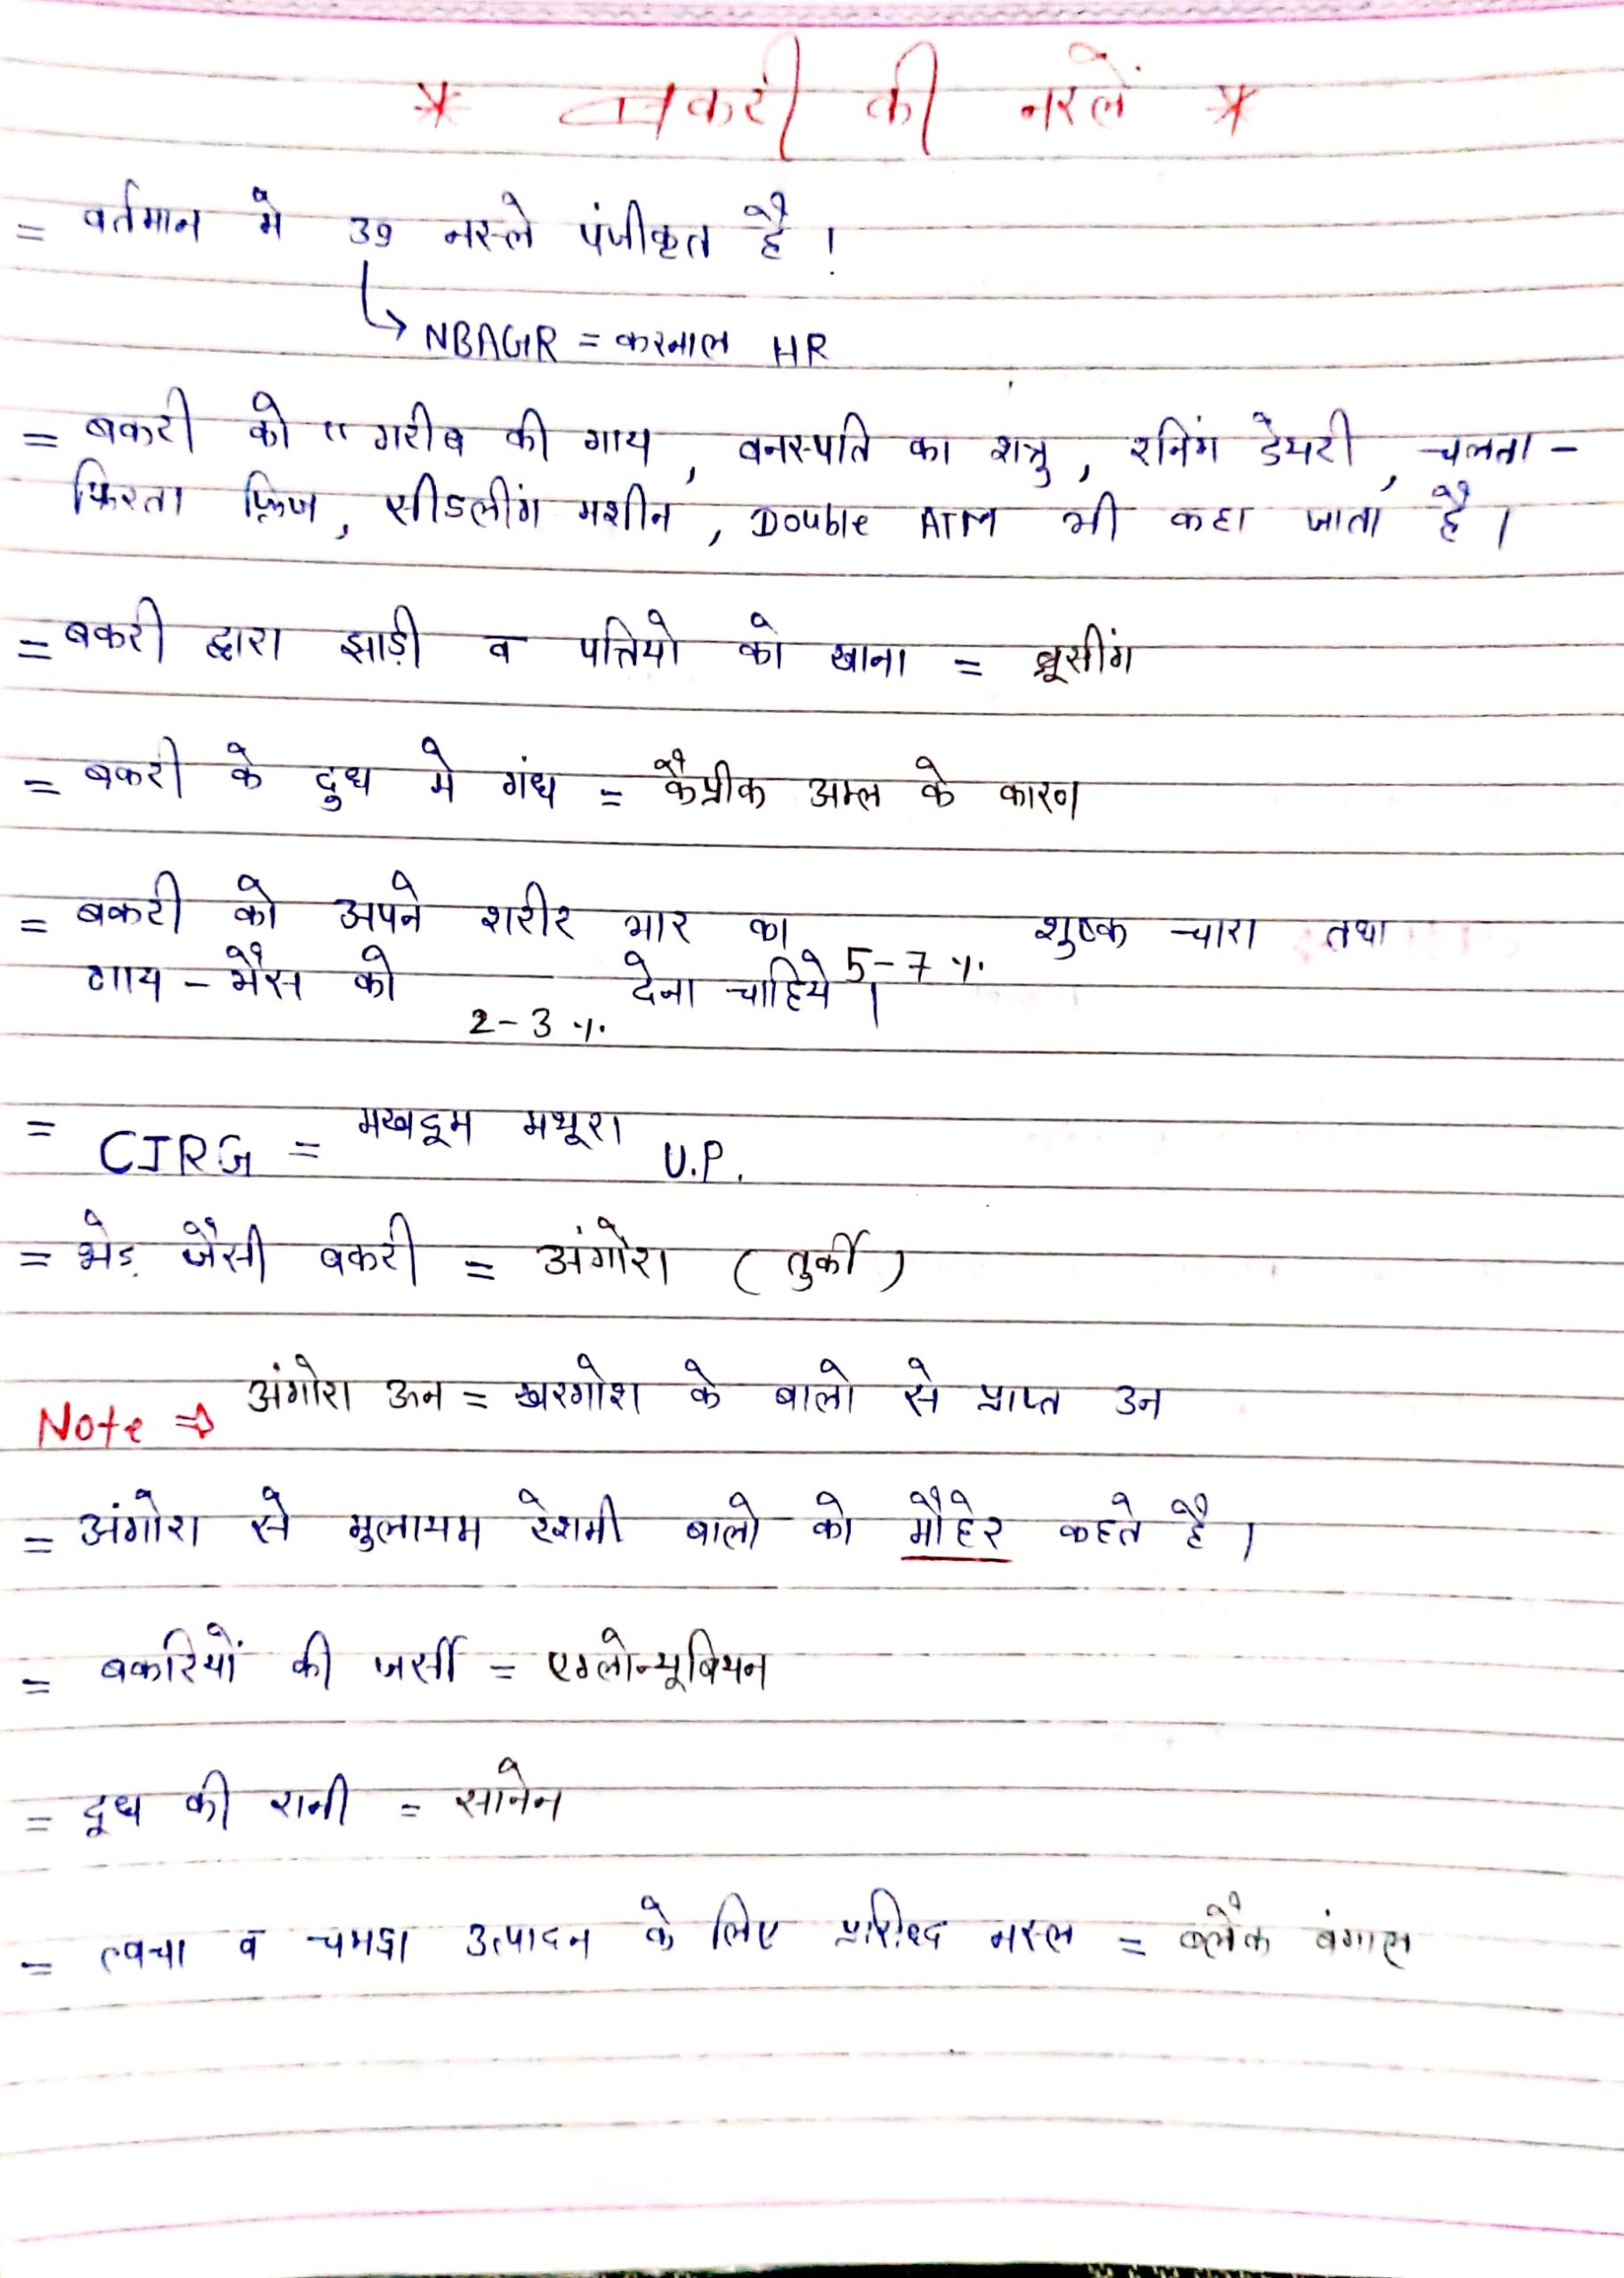 * बकरी की नस्लें *
= वर्तमान मे 39 नस्ले पंजीकृत है ।
↳ NBAGR = करनाल HR
= बकरी को " गरीब की गाय , वनस्पति का शत्रु , रनिंग डेयरी , चलता -
फिरता फ्रिज , सीडलींग मशीन , Double ATM भी कहा जाता है ।
= बकरी द्वारा झाड़ी व पत्तियो को खाना = ब्रूसींग
= बकरी के दुध मे गंध = कैप्रीक अम्ल के कारण
= बकरी को अपने शरीर भार का 5-7 %. शुष्क चारा तथा
गाय - भैंस को 2-3 %. देना चाहिये ।
= CIRG = मखदूम मथूरा U.P.
= भेड़ जैसी बकरी = अंगोरा ( तुर्की )
Note ⇒ अंगोरा ऊन = खरगोश के बालो से प्राप्त उन
= अंगोरा से मुलायम रेशमी बालो को मौहेर कहते है ।
= बकरियों की जर्सी = एग्लोन्यूबियन
= दूध की रानी = सानेन
= त्वचा व चमड़ा उत्पादन के लिए प्रसिध्द नस्ल = ब्लैक बंगाल